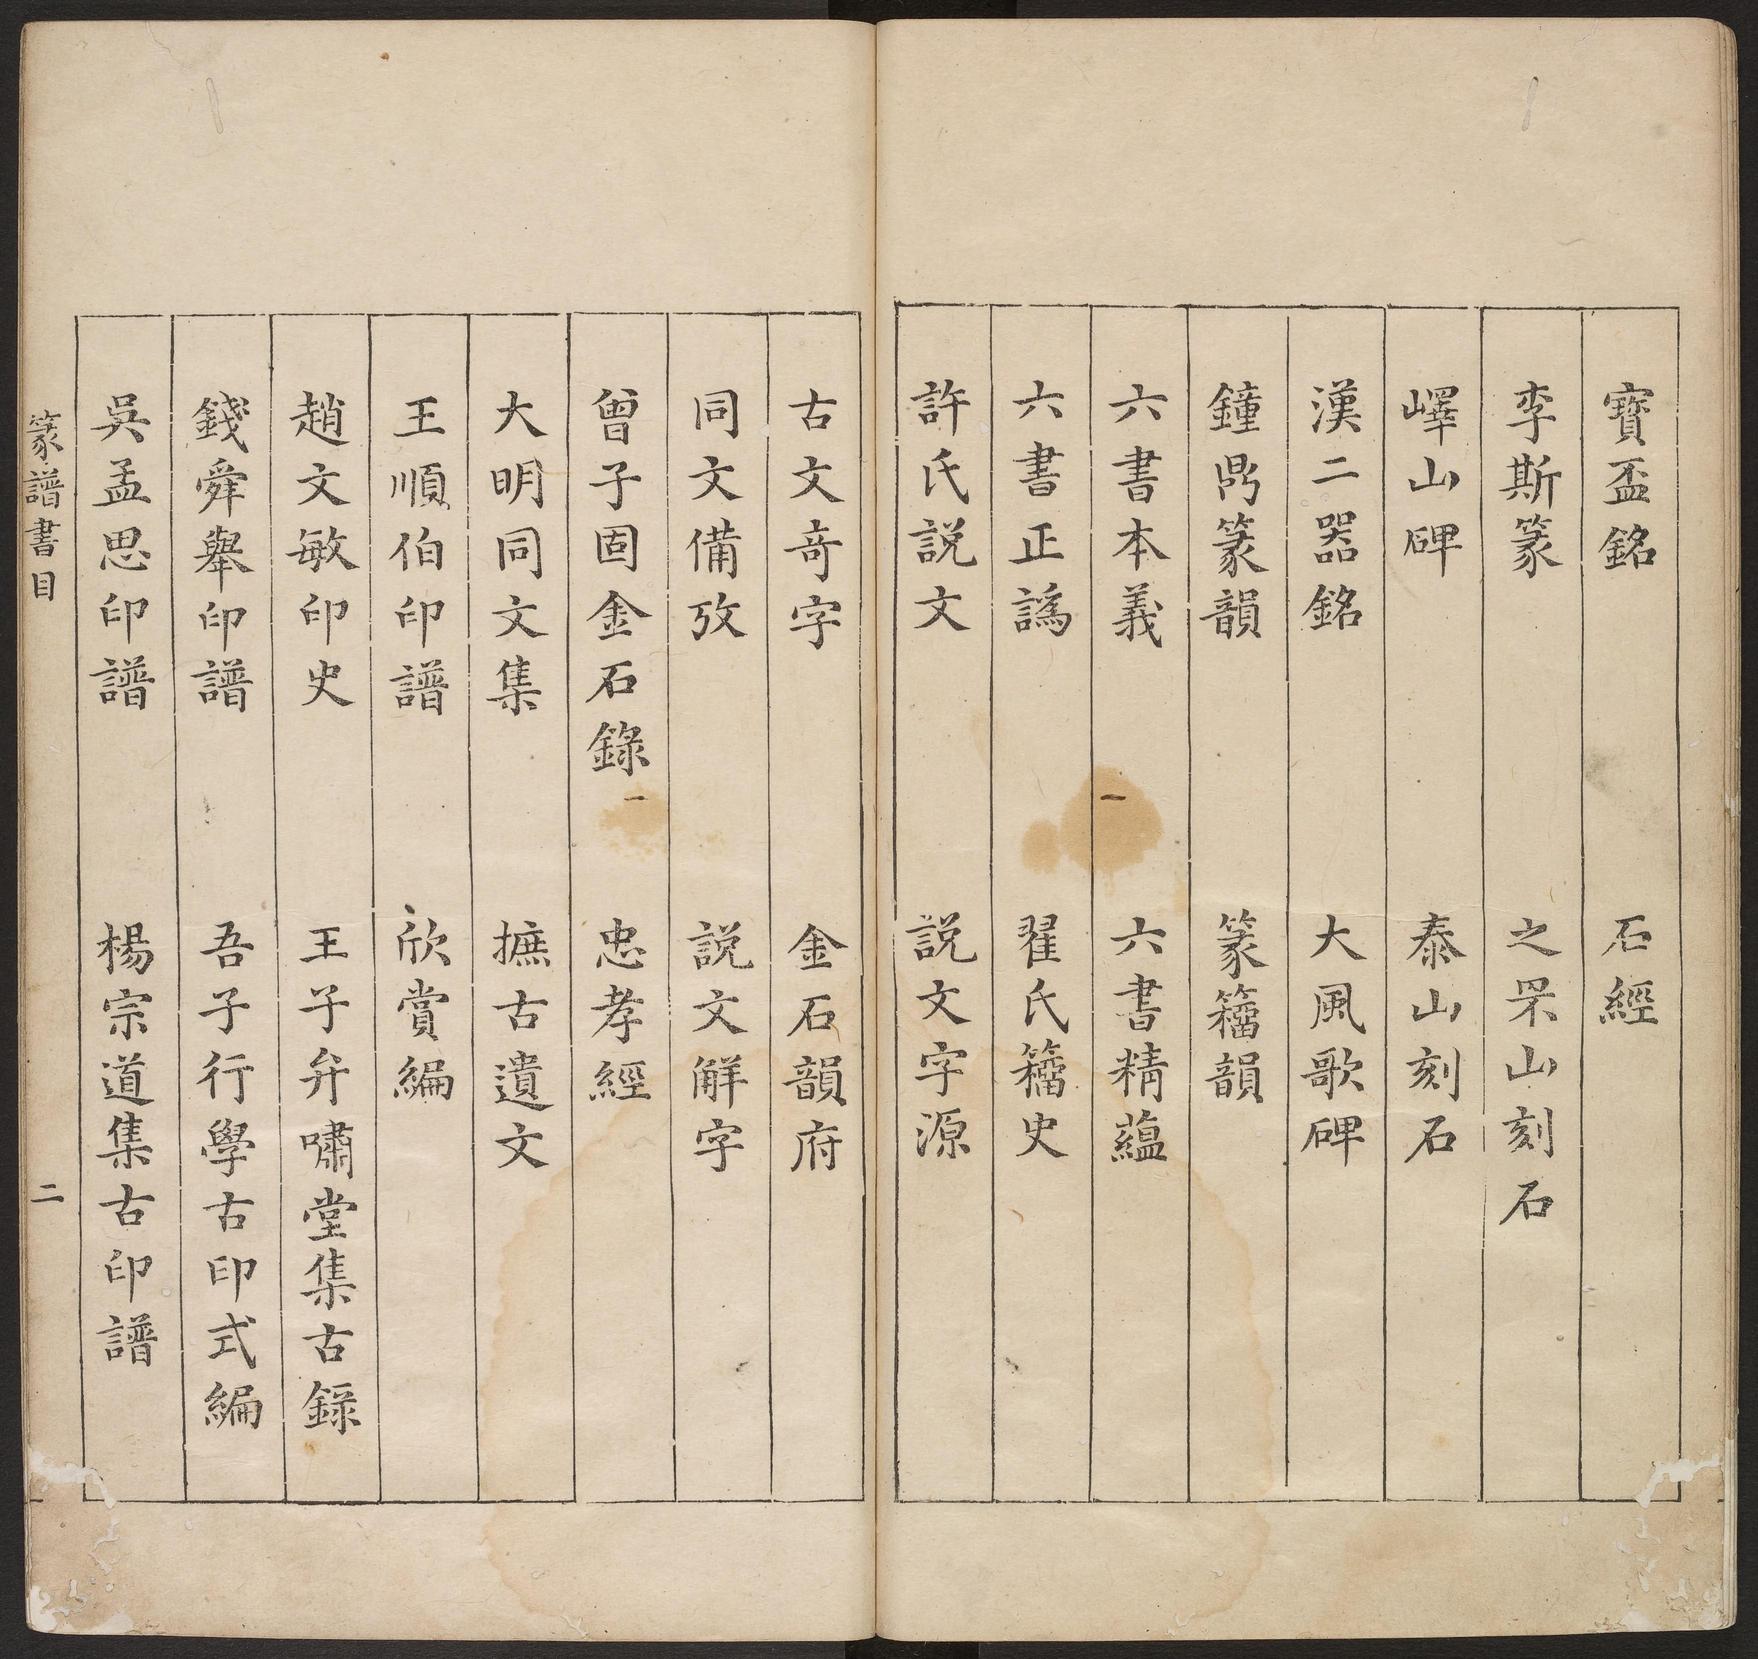 寶盃銘　石經
李斯篆　之罘山刻石
嶧山碑　泰山刻石
漢二器銘　大風歌碑
鐘鼎篆韻　篆籀韻
六書本義　六書精蘊
六書正譌　翟氏籀史
許氏説文　説文字源
古文奇字　金石韻府
同文備攷　説文解字
曾子固金石錄　忠孝經
大明同文集　摭古遺文
王順伯印譜　欣賞編
趙文敏印史　王子弁嘯堂集古録
錢舜舉印譜　吾子行學古印式編
吳孟思印譜　楊宗道集古印譜
篆譜書目　二